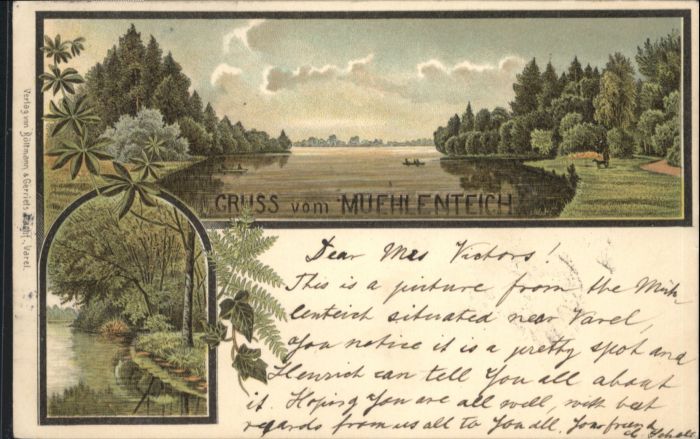 GRUSS vom MUEHLENTEICH
Verlag von Bültmann & Gerriets Nachf., Varel.
Dear Mrs Victors!
This is a picture from the Müh-
lenteich situated near Varel,
You notice it is a pretty spot and
Henrich can tell You all about
it. Hoping You are all well, with best
regards from us all to You all. Your friend